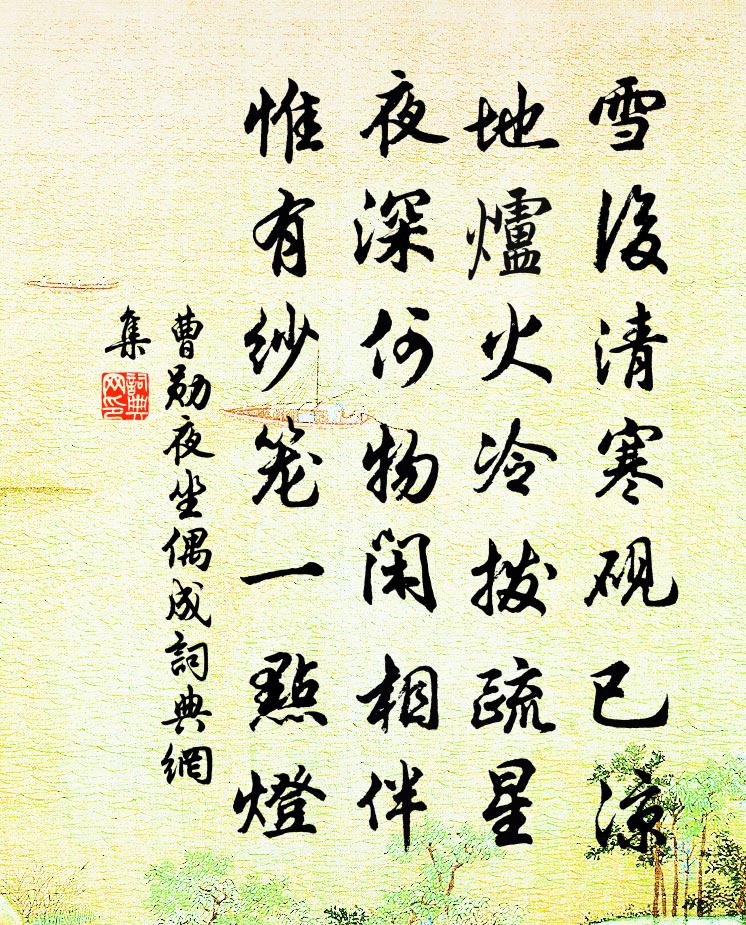 雪後清寒硯已涼
地爐火冷撥疏星
夜深何物閑相伴
惟有紗笼一點燈
曹勛夜坐偶成詞典網
集
詞典网印